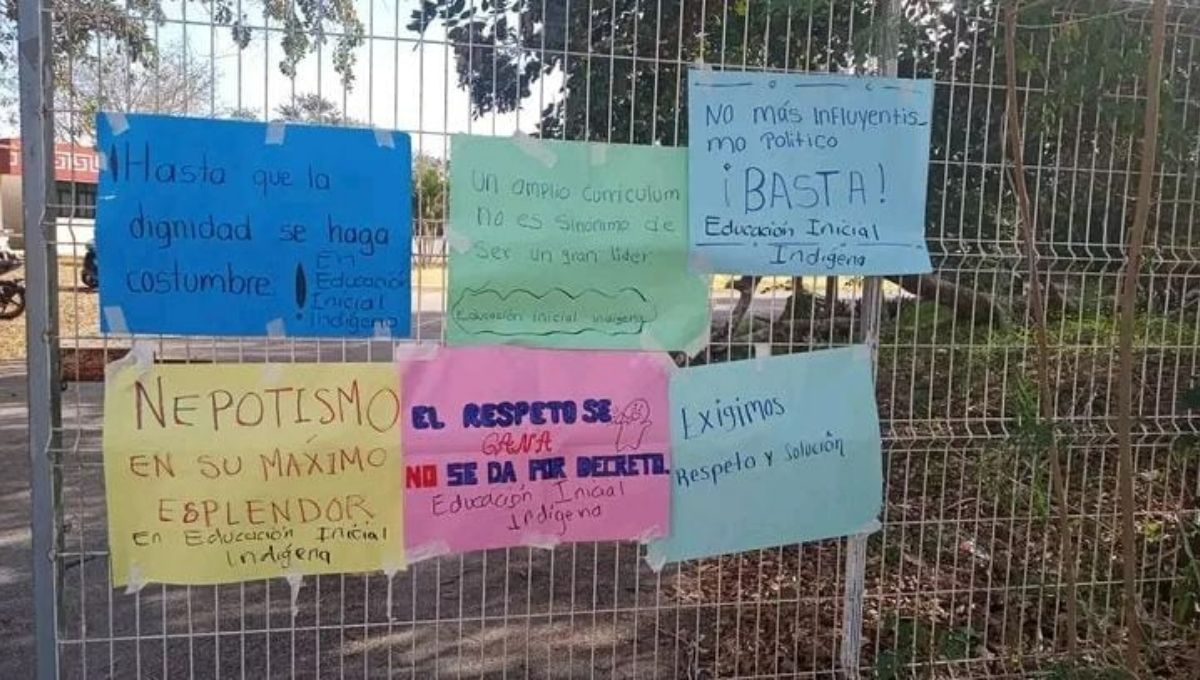 ¡Hasta que la
dignidad se haga
costumbre!
En
Educación
Inicial
Indígena
Un amplio curriculum
no es sinónimo de
ser un gran lider.
Educación inicial indigena
NO más INFluyentis_
mo Politico
¡BASTA!
Educación Inicial
Indígena
NEPOTISMO
EN SU MÁXIMO
ESPLENDOR
en Educación Inicial
Indígena
EL RESPETO SE
GANA
NO SE DA POR DECRETO.
Educación Inicial
Indígena
Exigimos
Respeto y Solución